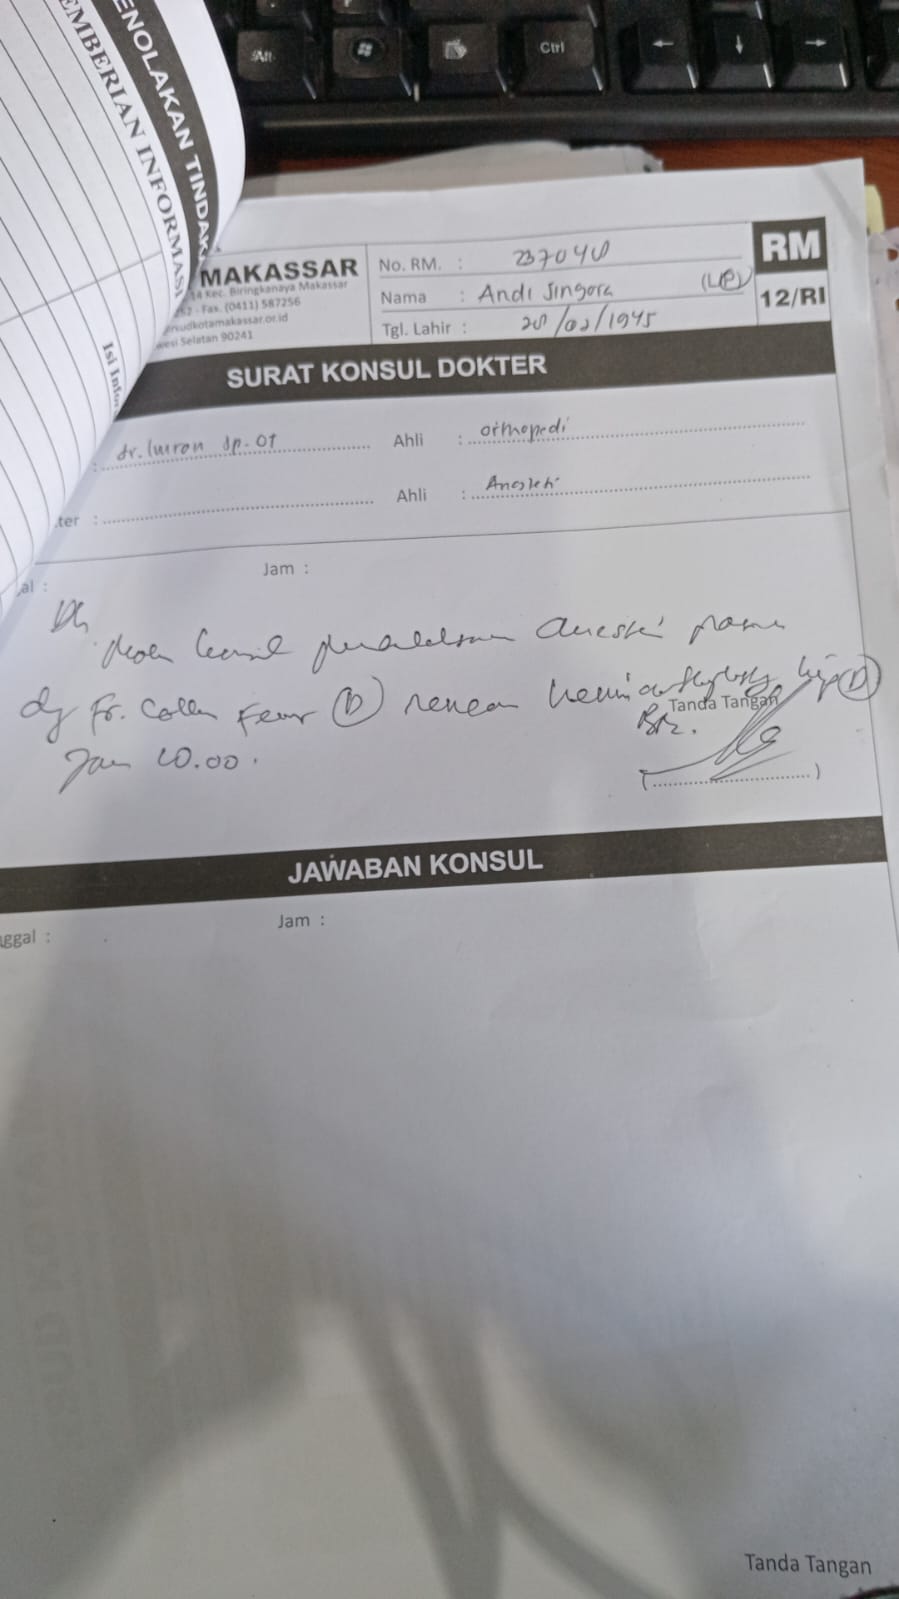 Alt
Ctrl
ENOLAKAN TINDAK
EMBERIAN INFORMASI
Isi Infor
MAKASSAR
14 Kec. Biringkanaya Makassar
252 - Fax. (0411) 587256
rsudkotamakassar.or.id
wesi Selatan 90241
No. RM. :
Nama : Andi Singara (L/P)
Tgl. Lahir : 28/02/1945
RM
12/RI
SURAT KONSUL DOKTER
: dr. Imron Sp.OT Ahli : orthopedi
ter : Ahli : Anestesi
al : Jam :
konsul anestesi
dg Fr. Collum Femur (D) rencana hemiarthroplasty hip (D)
Jam 10.00.
Tanda Tangan
(..........................)
JAWABAN KONSUL
nggal : Jam :
Tanda Tangan